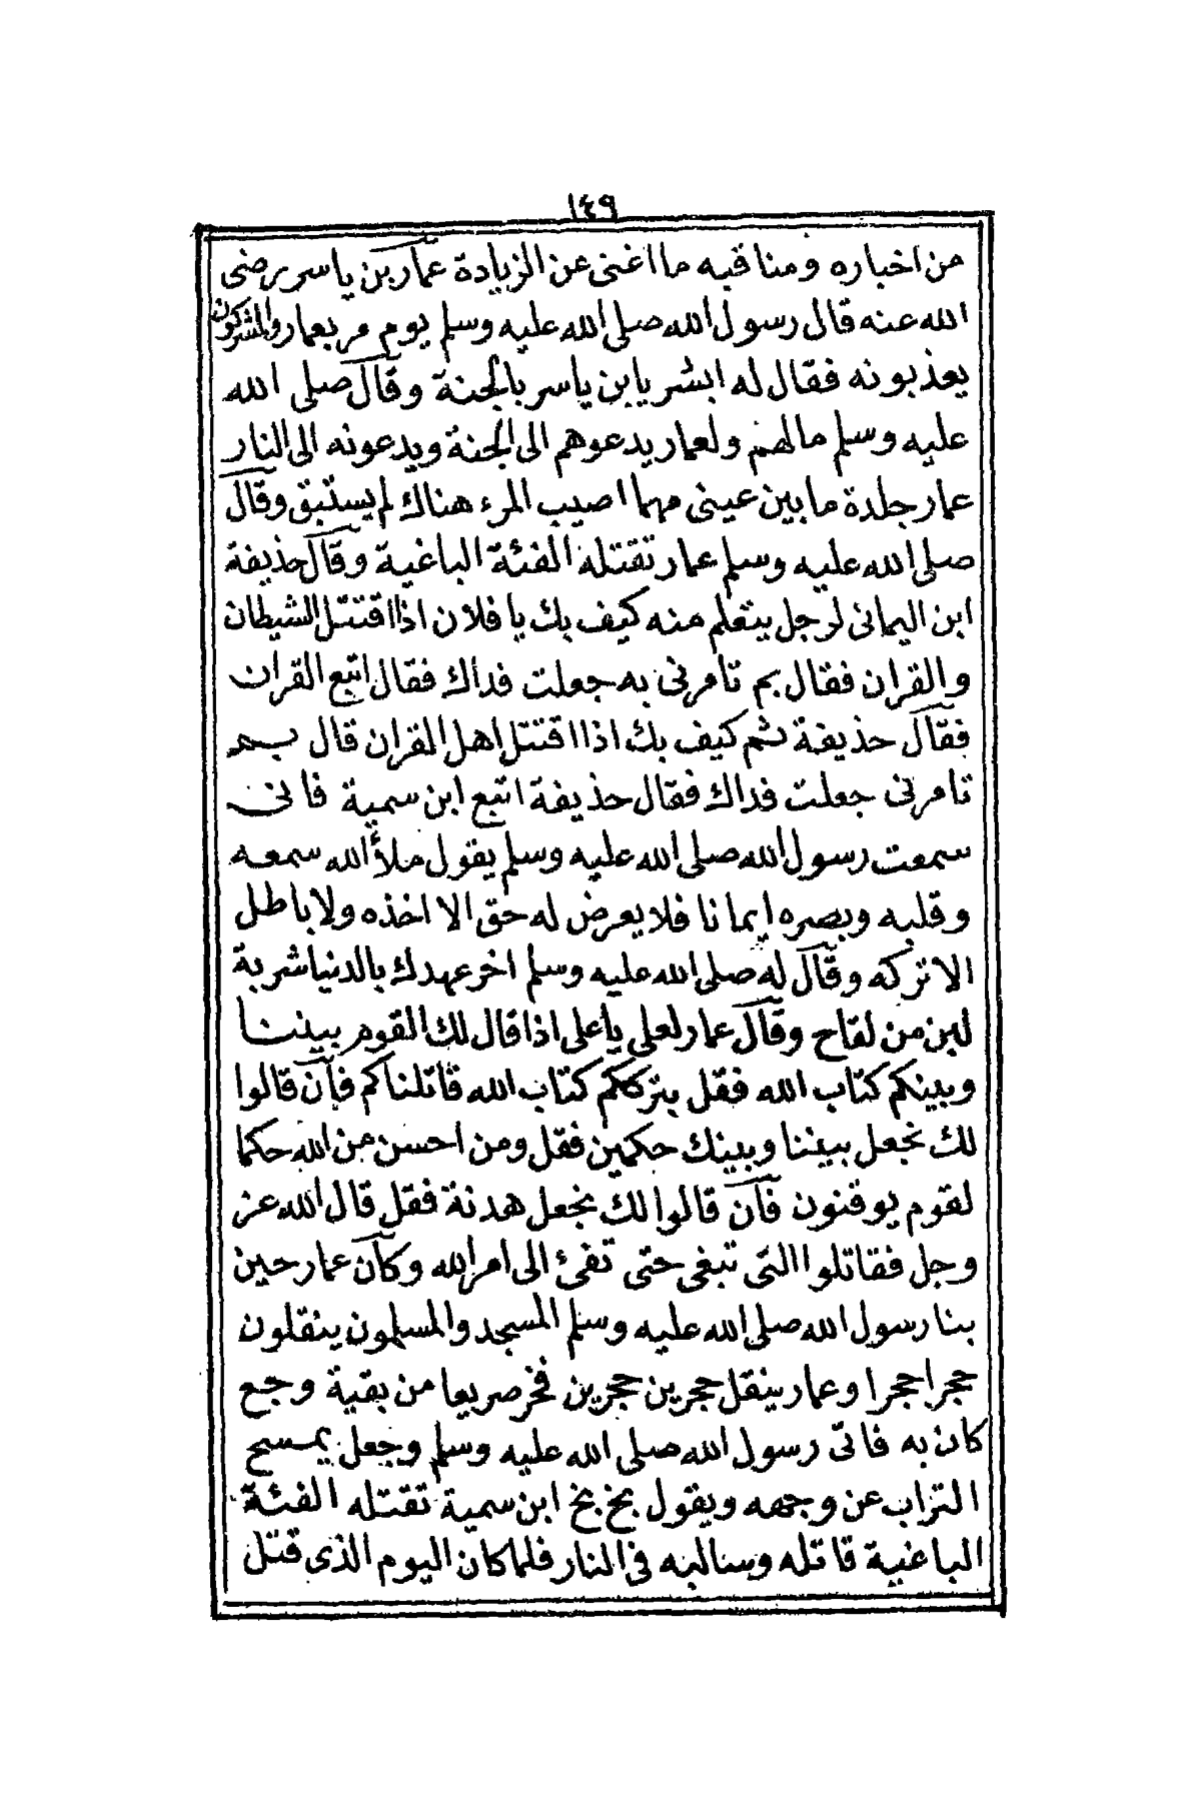 ١٤٩
من اخباره ومناقبه ما اغنى عن الزيادة عمار بن ياسر رضى
الله عنه قال رسول الله صلى الله عليه وسلم يوم مر بعمار والمشركون
يعذبونه فقال له ابشر يا ابن ياسر بالجنة وقال صلى الله
عليه وسلم مالهم ولعمار يدعوهم الى الجنة ويدعونه الى النار
عمار جلدة ما بين عينى مهما اصيب المرء هناك لم يستبق وقال
صلى الله عليه وسلم عمار تقتله الفئة الباغية وقال حذيفة
ابن اليمانى لرجل يتعلم منه كيف بك يا فلان اذا اقتتل الشيطان
والقران فقال بم تامرنى به جعلت فداك فقال اتبع القران
فقال حذيفة ثم كيف بك اذا اقتتل اهل القران قال بم
تامرنى جعلت فداك فقال حذيفة اتبع ابن سمية فانى
سمعت رسول الله صلى الله عليه وسلم يقول ملأ الله سمعه
وقلبه وبصره ايمانا فلا يعرض له حق الا اخذه ولا باطل
الا تركه وقال له صلى الله عليه وسلم اخر عهدك بالدنيا شربة
لبن من لقاح وقال عمار لعلى يا على اذا قال لك القوم بيننا
وبينكم كتاب الله فقل بترككم كتاب الله قاتلناكم فان قالوا
لك نجعل بيننا وبينك حكمين فقل ومن احسن من الله حكما
لقوم يوقنون فان قالوا لك نجعل هدنة فقل قال الله عز
وجل فقاتلوا التى تبغى حتى تفئ الى امر الله وكان عمار حين
بنا رسول الله صلى الله عليه وسلم المسجد والمسلمون ينقلون
حجرا حجرا وعمار ينقل حجرين حجرين فخر صريعا من بقية وجع
كان به فاتى رسول الله صلى الله عليه وسلم وجعل يمسح
التراب عن وجهه ويقول بخ بخ ابن سمية تقتله الفئة
الباغية قاتله وسالبه فى النار فلما كان اليوم الذى قتل